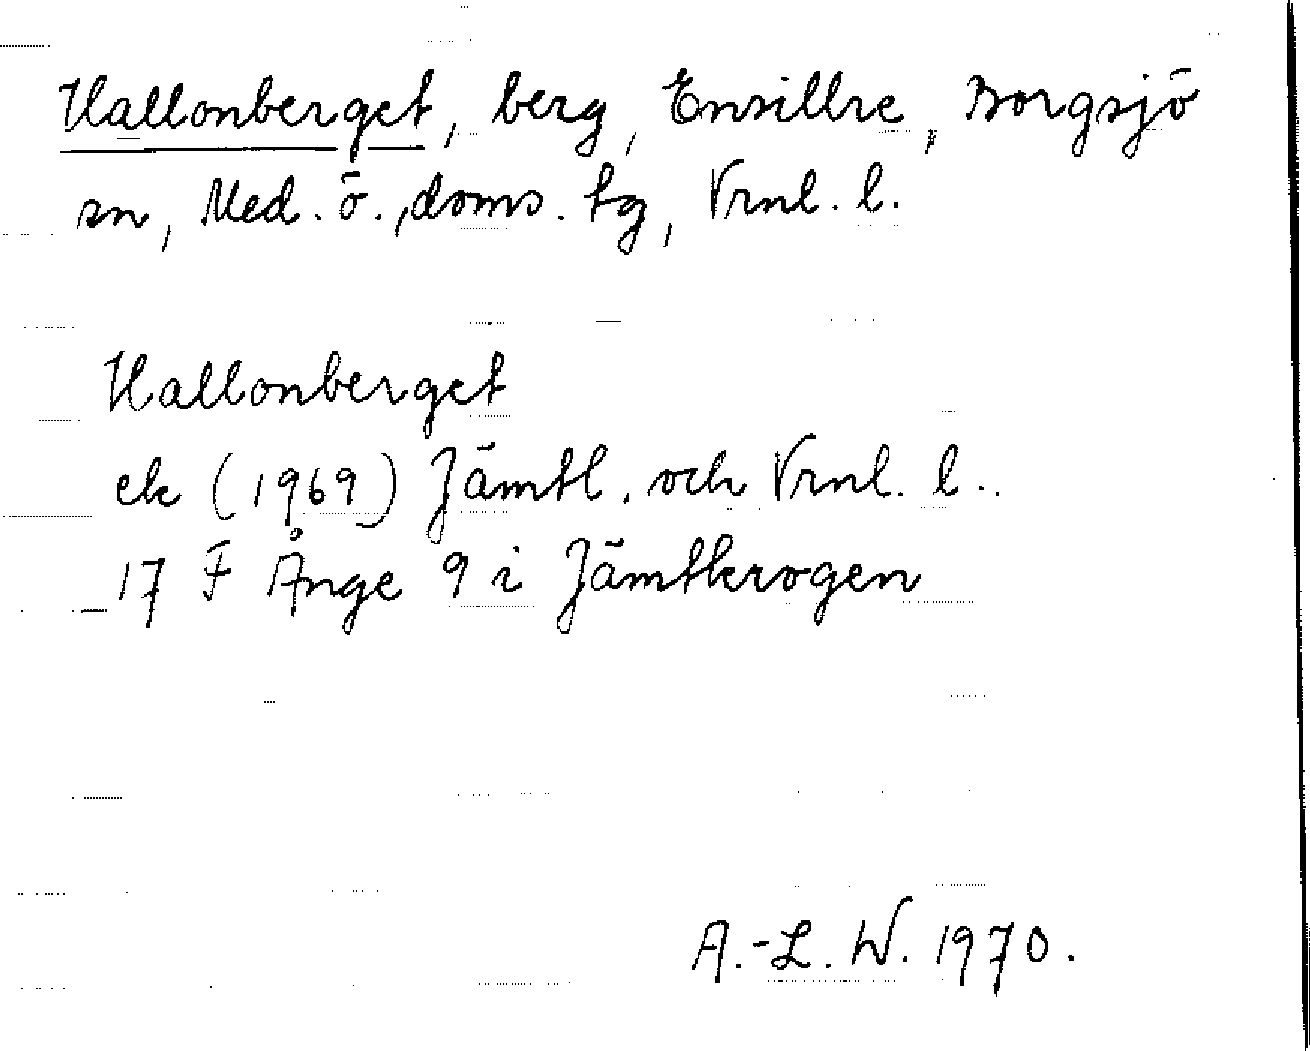 Hallonberget, berg, Ensillre, Borgsjö
sn, Med. ö., doms. tg, Vrnl. l.
Hallonberget
ek (1969) Jämtl. och Vrnl. l..
17 F Ånge 9 i Jämtkrogen
A.-L. W. 1970.